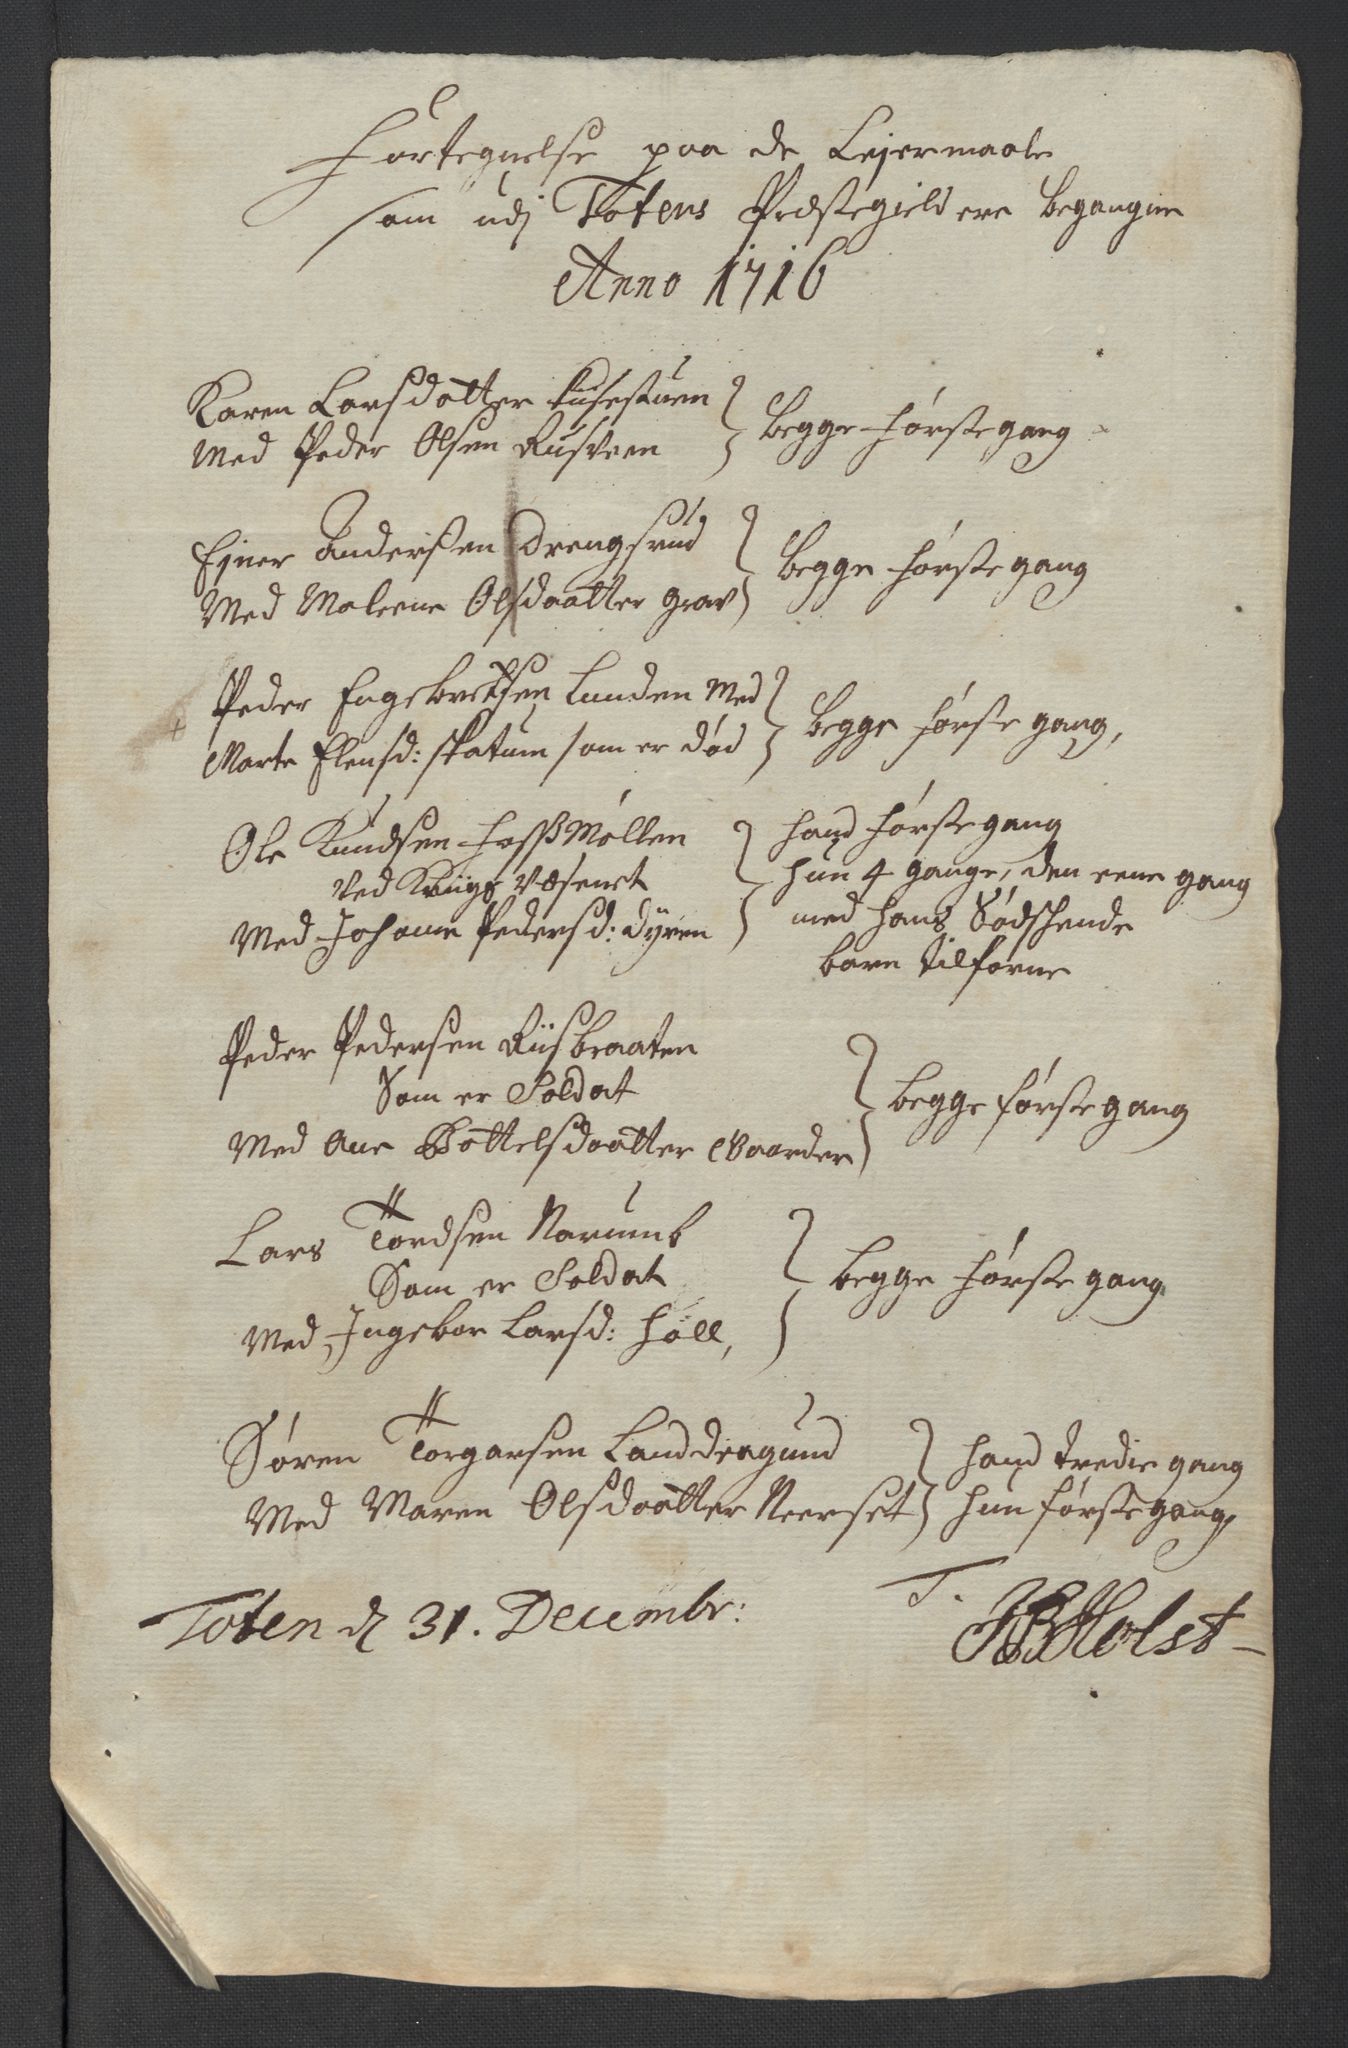 Fortegnelse paa de Lejermaale
som udj Totens Præstegield ere begangne
Anno 1716
Karen Larsdatter
Med Peder Olsen Rusveen } begge første gang
Ejner Anderssen Drengsrud
Med Maleene Olsdaatter Grav } begge første gang
Peder Engebretsen Lunden Med
Marte Elensd: Skatum som er død } begge første gang,
Ole Knudsen Hoffsmøllen
ved Kriigs væsenet
Med Johanne Pedersd: Dyren }
hand første gang
hun 4 gange, den eene gang
med hans Sødskende
barn tilforne
Peder Pedersen Riisbraaten
Som er Soldat
Med Ane Bottelsdaatter Gaarder } begge første gang
Lars Tordsen Narumb
Som er Soldat
Med Ingebor Larsd: Holl, } begge første gang
Søren Torgarsen Landdragund } hand tredie gang
Med Maren Olsdaatter Neerset } hun første gang,
Toten d 31. Decembr:
T. HBHolst